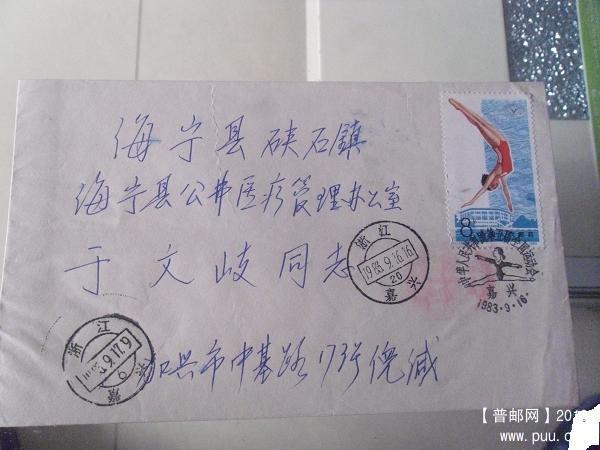 海宁县硖石鎮
海宁县公费医疗管理办公室
于文岐同志
加兴市中基路17号倪缄
8
中华人民共和国第五届全国运动会
嘉兴
1983.9.16.
浙江
1983.9.16.16
20
嘉兴
浙江
9.17.9
6
【普邮网】20
www.puu.c